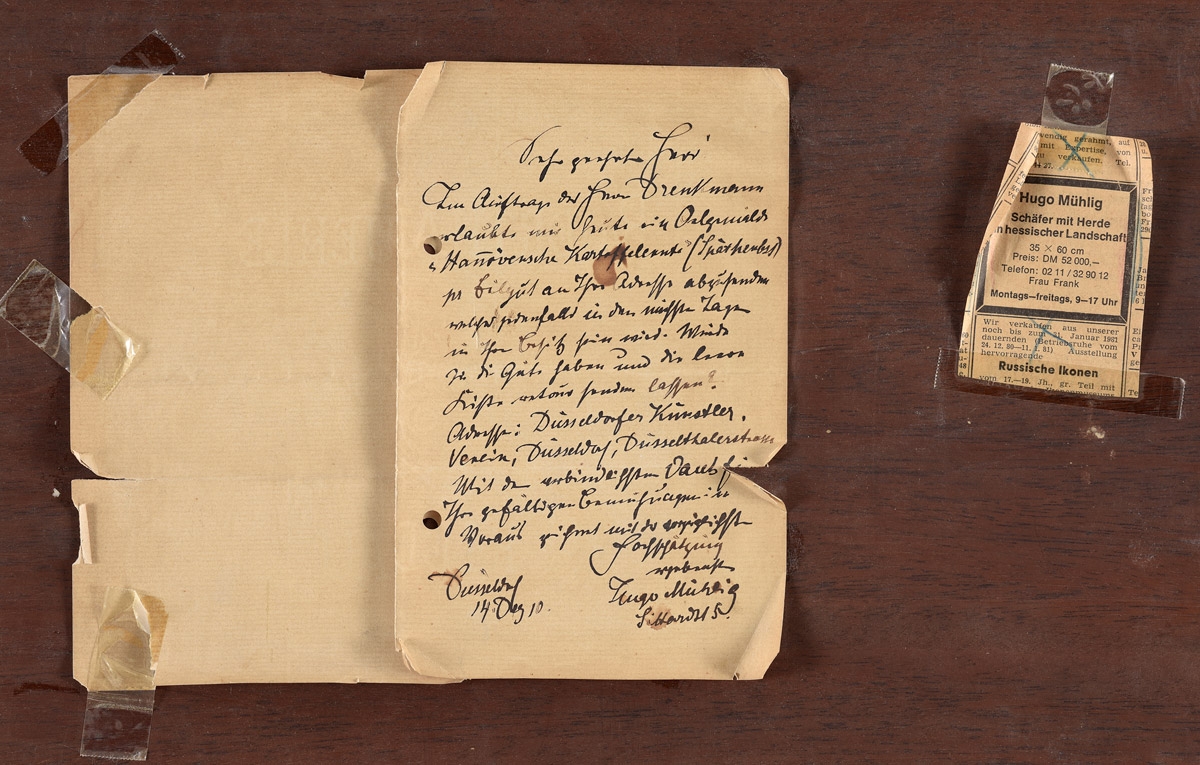 Sehr geehrter Herr
Im Auftrage des Herrn Drenkmann
erlaubte mir heute ein Oelgemälde
"Hannoversche Kartoffelernte" (Spätherbst)
per Eilgut an Ihre Adresse abzusenden
welches jedenfalls in den nächsten Tagen
in Ihrem Besitz sein wird. Würden
Sie die Güte haben und die leere
Kiste retour senden lassen?
Adresse: Düsseldorfer Künstler.
Verein, Düsseldorf, Düsselthalerstrasse
Mit dem verbindlichsten Dank für
Ihre gefälligen Bemühungen im
Voraus zeichnet mit der vorzüglichsten
Hochschätzung
ergebenst
Hugo Mühlig
Düsseldorf
14. Dez 10.
wendig gerahmt, auf
mit Expertise, von
zu verkaufen. Tel.
Hugo Mühlig
Schäfer mit Herde
in hessischer Landschaft
35 × 60 cm
Preis: DM 52 000,—
Telefon: 02 11 / 32 90 12
Frau Frank
Montags—freitags, 9—17 Uhr
Wir verkaufen aus unserer
noch bis zum 31. Januar 1981
dauernden (Betriebsruhe vom
24. 12. 80—11. 1. 81) Ausstellung
hervorragende
Russische Ikonen
vom 17.—19. Jh., gr. Teil mit